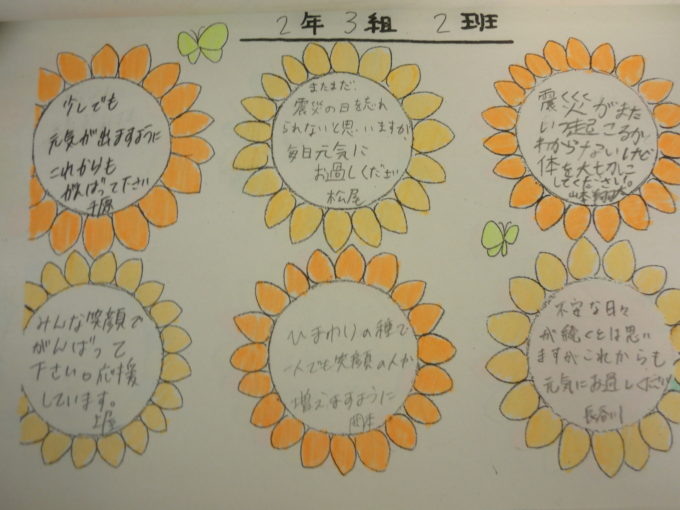 2年3組 2班
少しでも
元気が出ますように
これからも
がんばって下さい
千原
まだまだ、
震災の日を忘れ
られないと思いますが、
毎日元気に
お過しください
松尾
震災がまた
いつ起こるか
わからないけど
体を大切に
してください。
みんな笑顔で
がんばって
下さい。応援
しています。
土屋
ひまわりの種で
一人でも笑顔の人が
増えますように
岡本
不安な日々
が続くとは思い
ますがこれからも
元気にお過しください
長谷川